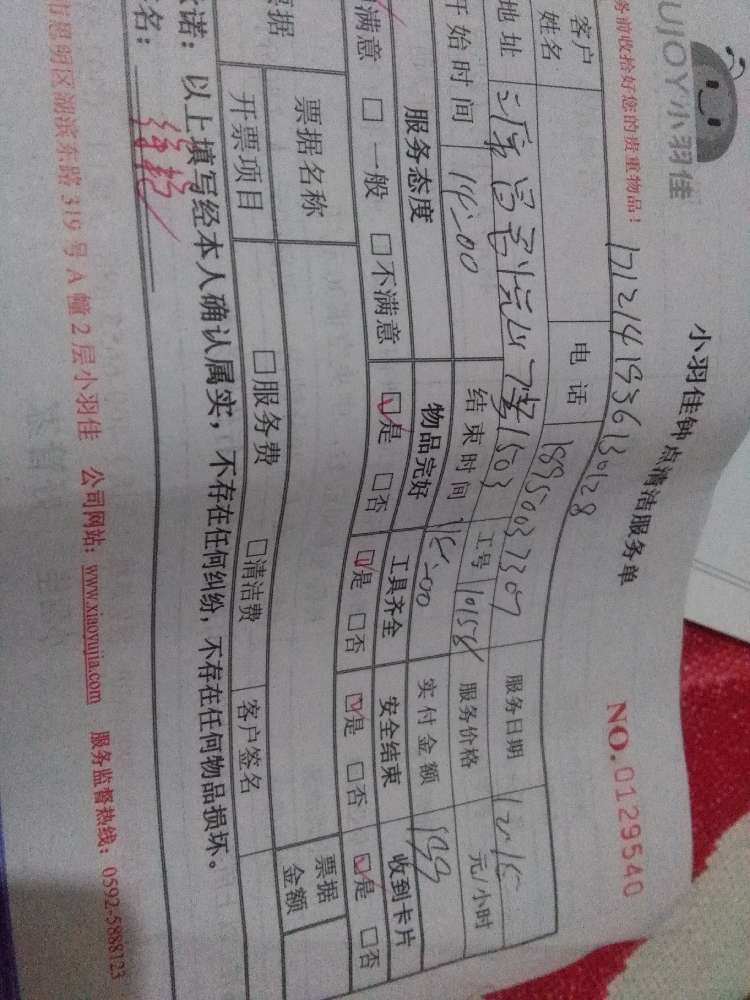 UJOY小羽佳
务前收拾好您的贵重物品！
小羽佳钟点清洁服务单
NO.0129540
客户姓名 电话 服务日期 12-15
地址 1503 工号 10158 服务价格 元/小时
开始时间 14:00 结束时间 实付金额 199
服务态度 物品完好 工具齐全 安全结束 收到卡片
满意 □一般 □不满意 ☑是 □否 ☑是 □否 ☑是 □否 ☑是 □否
票据 票据名称 票据金额
开票项目 □服务费 □清洁费 客户签名
诺：以上填写经本人确认属实，不存在任何纠纷，不存在任何物品损坏。
名：
市思明区湖滨东路 319 号 A 幢 2 层小羽佳 公司网站：www.xiaoyujia.com 服务监督热线：0592-5888123